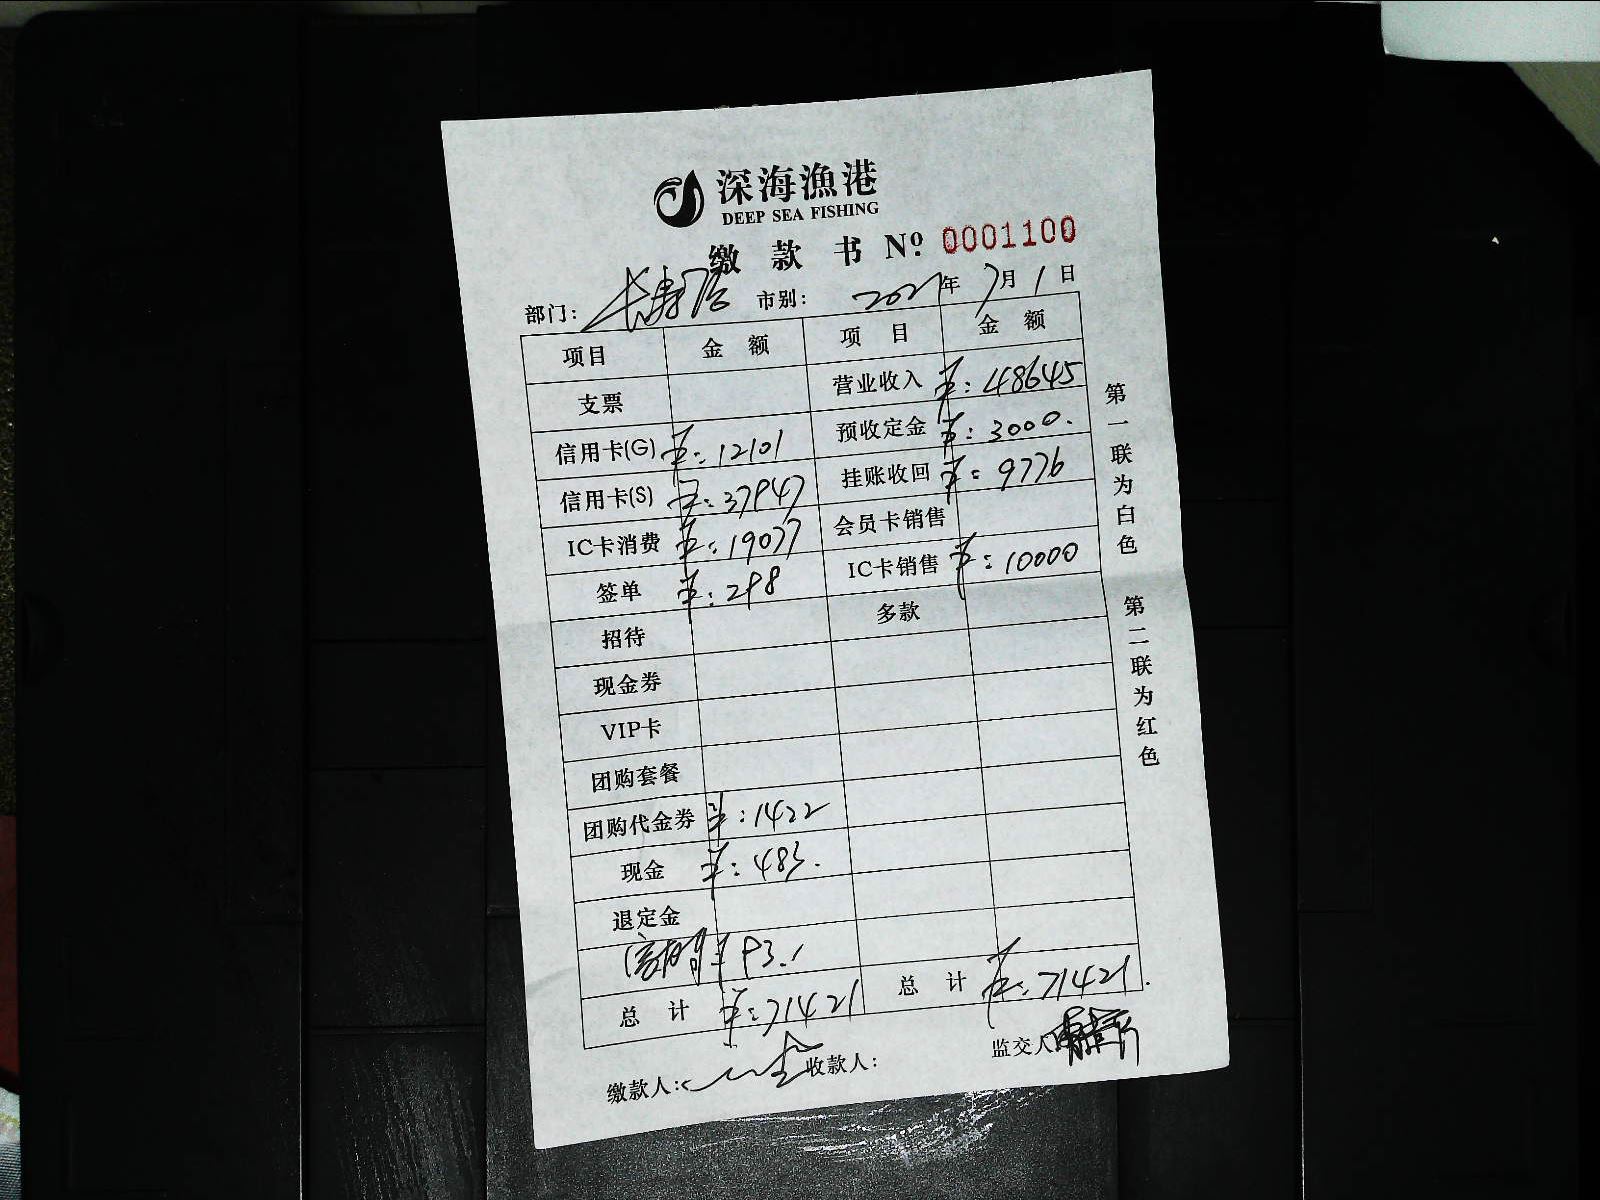 深海渔港
DEEP SEA FISHING
缴款书 No. 0001100
部门: 长寿路 市别: 2021年7月1日
项目 金额 项目 金额
支票 营业收入 ¥:48645
信用卡(G) ¥:12101 预收定金 ¥:3000.
信用卡(S) ¥:37947 挂账收回 ¥:9776
IC卡消费 ¥:19077 会员卡销售
签单 ¥:298 IC卡销售 ¥:10000
招待 多款
现金券
VIP卡
团购套餐
团购代金券 ¥:1422
现金 ¥:483.
退定金
¥93.1
总计 ¥:71421 总计 ¥:71421.
缴款人: 收款人: 监交人
第一联为白色 第二联为红色